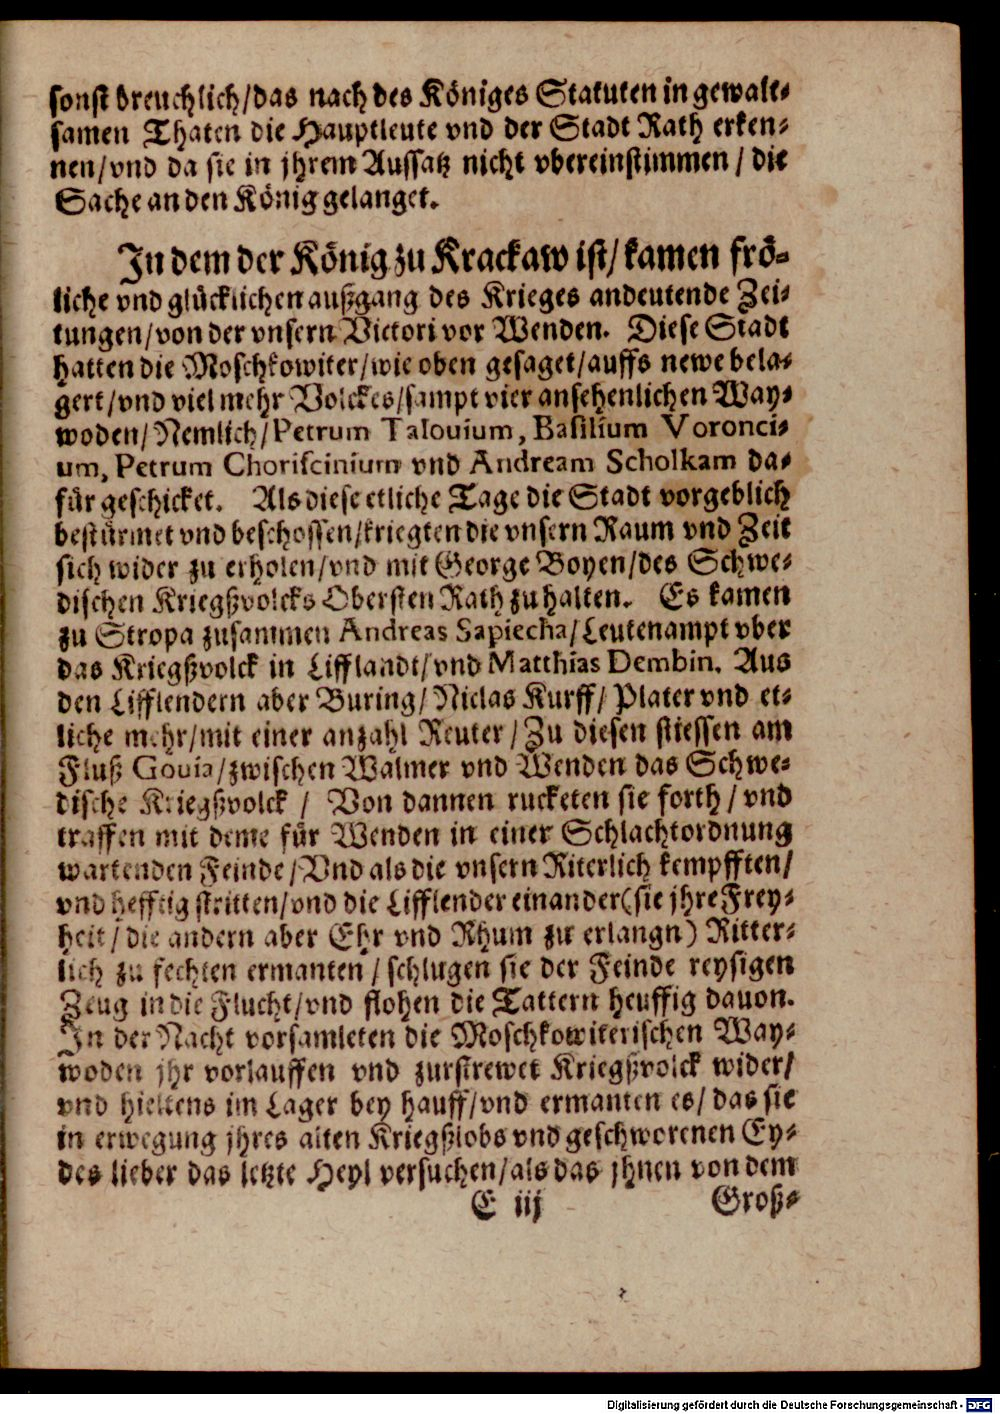 sonst breuchlich/das nach des Königes Statuten in gewalt-
samen Thaten die Hauptleute vnd der Stadt Rath erken-
nen/vnd da sie in jhrem Aussatz nicht vbereinstimmen / die
Sache an den König gelanget.
In dem der König zu Krackaw ist/ kamen frö-
liche vnd glücklichen außgang des Krieges andeutende Zei-
tungen/von der vnsern Victori vor Wenden. Diese Stadt
hatten die Moschkowiter/wie oben gesaget/auffs newe bela-
gert/vnd viel mehr Volckes/sampt vier ansehenlichen Way-
woden/ Nemlich/ Petrum Talouium, Basilium Voronci-
um, Petrum Choriscinium vnd Andream Scholkam da-
für geschicket. Als diese etliche Tage die Stadt vorgeblich
bestürmet vnd beschossen/kriegten die vnsern Raum vnd Zeit
sich wider zu erholen/vnd mit George Boyen/des Schwe-
dischen Kriegßvolcks Obersten Rath zu halten. Es kamen
zu Stropa zusammen Andreas Sapiecha/Leutenampt vber
das Kriegßvolck in Lifflandt/vnd Matthias Dembin. Aus
den Lifflendern aber Buring/ Niclas Kurff/ Plater vnd et-
liche mehr/mit einer anzahl Reuter / Zu diesen stiessen am
Fluß Gouia/zwischen Walmer vnd Wenden das Schwe-
dische Kriegßvolck / Von dannen rucketen sie forth / vnd
traffen mit deme für Wenden in einer Schlachtordnung
wartenden Feinde / Vnd als die vnsern Riterlich kempfften/
vnd hefftig stritten/vnd die Lifflender einander(sie jhre Frey-
heit / die andern aber Ehr vnd Rhum zu erlangn) Ritter-
lich zu fechten ermanten / schlugen sie der Feinde reysigen
Zeug in die Flucht/vnd flohen die Tattern heuffig dauon.
In der Nacht vorsamleten die Moschkowiterischen Way-
woden jhr vorlauffen vnd zurstrewet Kriegßvolck wider/
vnd hieltens im Lager bey hauff/vnd ermanten es/ das sie
in erwegung jhres alten Kriegßlobs vnd geschworenen Ey-
des lieber das letzte Heyl versuchen/als das jhnen von dem
E iij Groß-
Digitalisierung gefördert durch die Deutsche Forschungsgemeinschaft - DFG